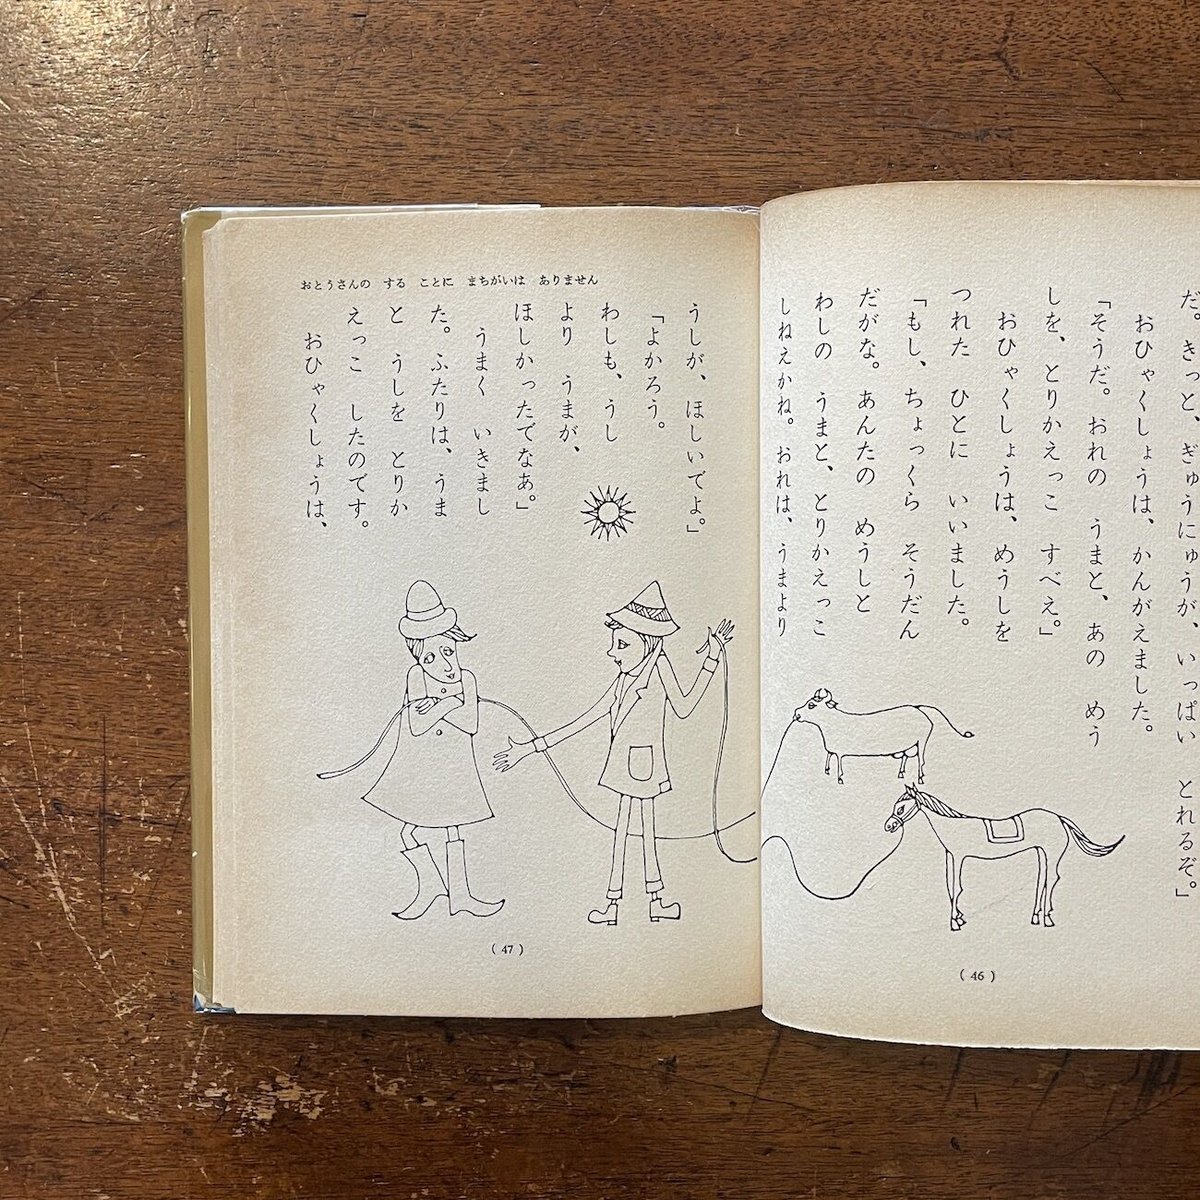 だ。きっと、ぎゅうにゅうが、いっぱい とれるぞ。」
おひゃくしょうは、かんがえました。
「そうだ。おれの うまと、あの めう
しを、とりかえっこ すべえ。」
おひゃくしょうは、めうしを
つれた ひとに いいました。
「もし、ちょっくら そうだん
だがな。あんたの めうしと
わしの うまと、とりかえっこ
しねえかね。おれは、うまより
( 46 )
おとうさんの する ことに まちがいは ありません
うしが、ほしいでよ。」
「よかろう。
わしも、うし
より うまが、
ほしかったでなあ。」
うまく いきまし
た。ふたりは、うま
と うしを とりか
えっこ したのです。
おひゃくしょうは、
( 47 )